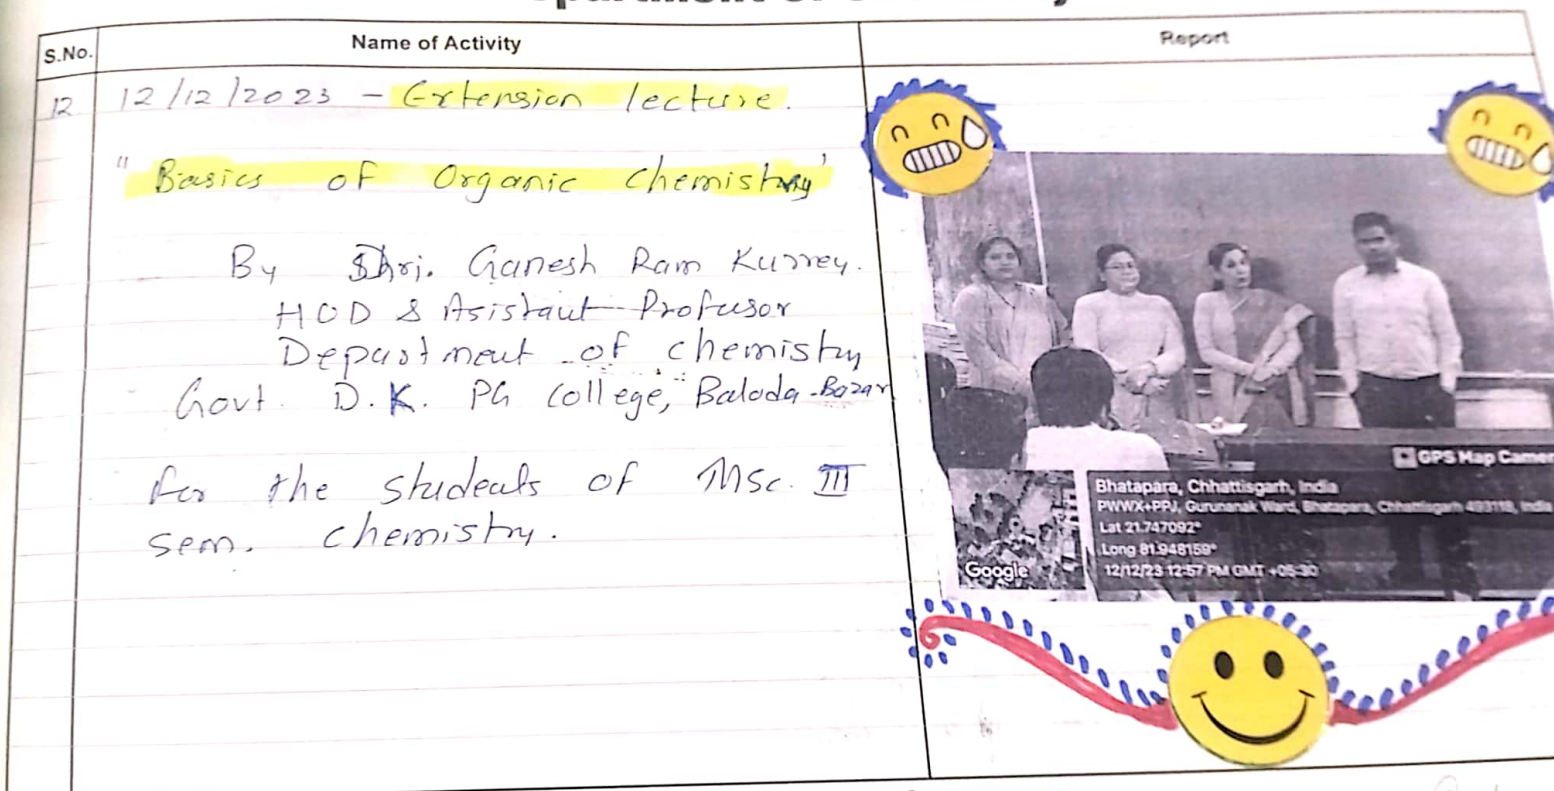 S.No.
Name of Activity
Report
12
12/12/2023 - Extension lecture.
"Basics of Organic Chemistry'
By Shri. Ganesh Ram Kurrey.
HOD & Asistant Profusor
Department of chemistry
Govt. D.K. PG College, Baloda-Bazar
for the students of Msc. III
sem. chemistry.
GPS Map Camer
Bhatapara, Chhattisgarh, India
PWWX+PPJ, Gurunanak Ward, Bhatapara, Chhattisgarh 493118, India
Lat 21.747092°
Long 81.948159°
12/12/23 12:57 PM GMT +05:30
Google